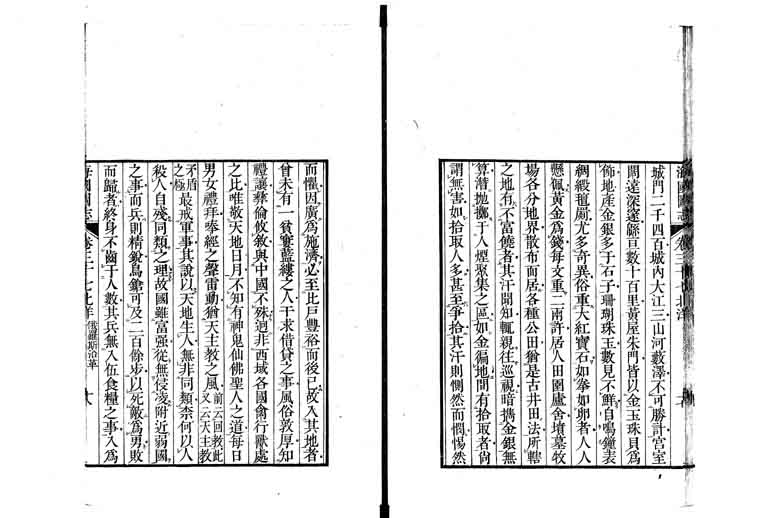 城門二千四百城內大江三山河藪澤不可勝計宮室
闊達深邃緜亘數十百里黃屋朱門皆以金玉珠貝爲
佈地產金銀多于石子珊瑚珠玉數見不鮮自鳴鐘表
綢緞氊罽尤多奇異俗重大紅寶石如拳如卵者人人
懸佩黃金爲錢每文重二兩許居人田園廬舍墳墓牧
場各分地界散布而居各種公田猶是古井田法所轄
之地有不富饒者其汗聞知輒親往巡視暗攜金銀無
算潛拋擲于人煙聚集之區如金徧地間有拾取者尙
謂無害如拾取人多甚至爭拾其汗則惻然而憫惕然
而懼因廣爲施濟必至比戸豐裕而後已故入其地者
曾未有一貧寠藍縷之人干求借貸之事風俗敦厚知
禮讓彝倫攸敘與中國不殊迥非西域各國禽行獸處
之比唯敬天地日月不知有神鬼仙佛聖人之道每日
男女禮拜奉經之聲雷動猶天主敎之風前云回敎此又云天主敎
矛盾之極最戒軍事其說以天地生人無非同類柰何以人
殺人自殘同類之理故國雖富强從無侵凌附近弱國
之事而兵則精銳鳥鎗可及二百餘步以死敵爲勇敗
而歸者終身不齒于人數其兵無入伍食糧之事入爲
海國圖志 卷三十七北洋 俄羅斯沿革
海國圖志 卷三十七北洋